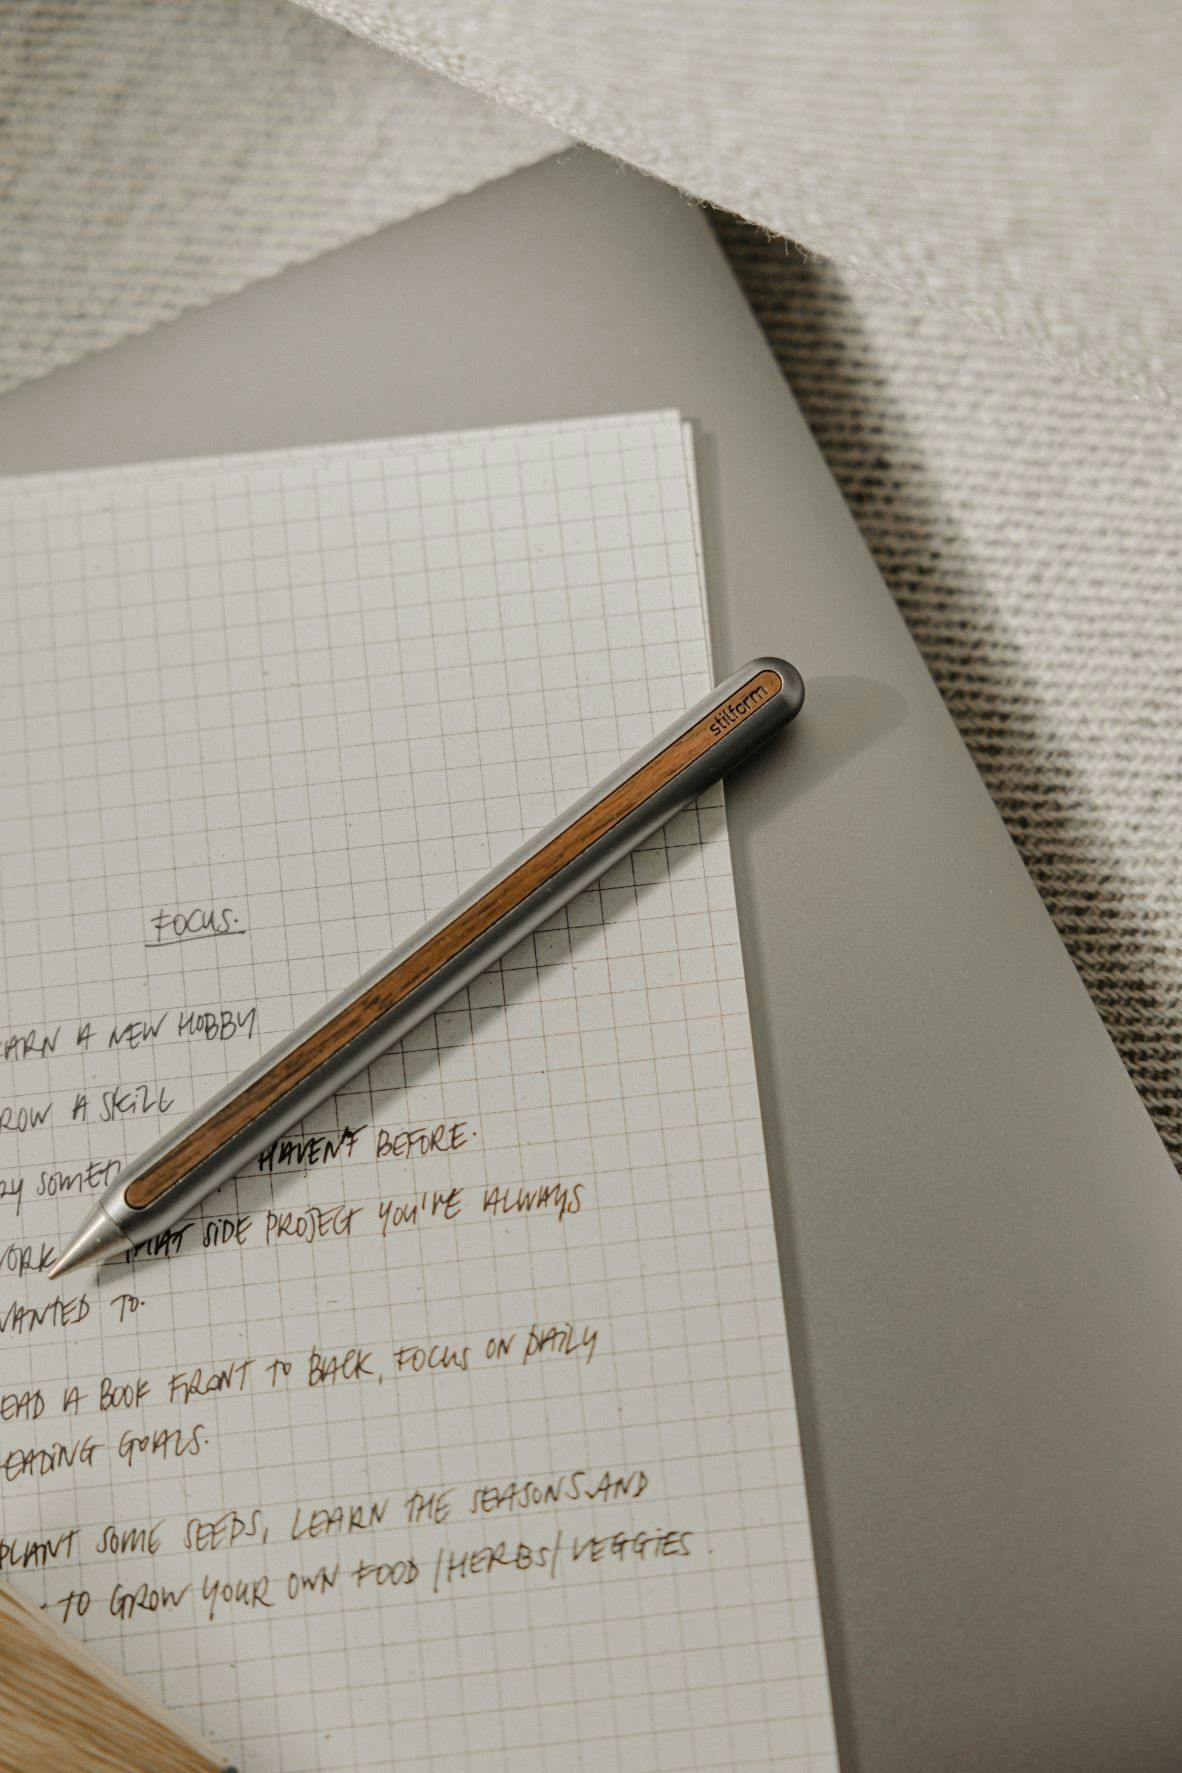 stilform
FOCUS.
EARN A NEW HOBBY
ROW A SKILL
RY SOMET HAVEN'T BEFORE.
WORK THAT SIDE PROJECT YOU'VE ALWAYS
WANTED TO.
EAD A BOOK FRONT TO BACK, FOCUS ON DAILY
EADING GOALS.
PLANT SOME SEEDS, LEARN THE SEASONS AND
TO GROW YOUR OWN FOOD/HERBS/VEGGIES.